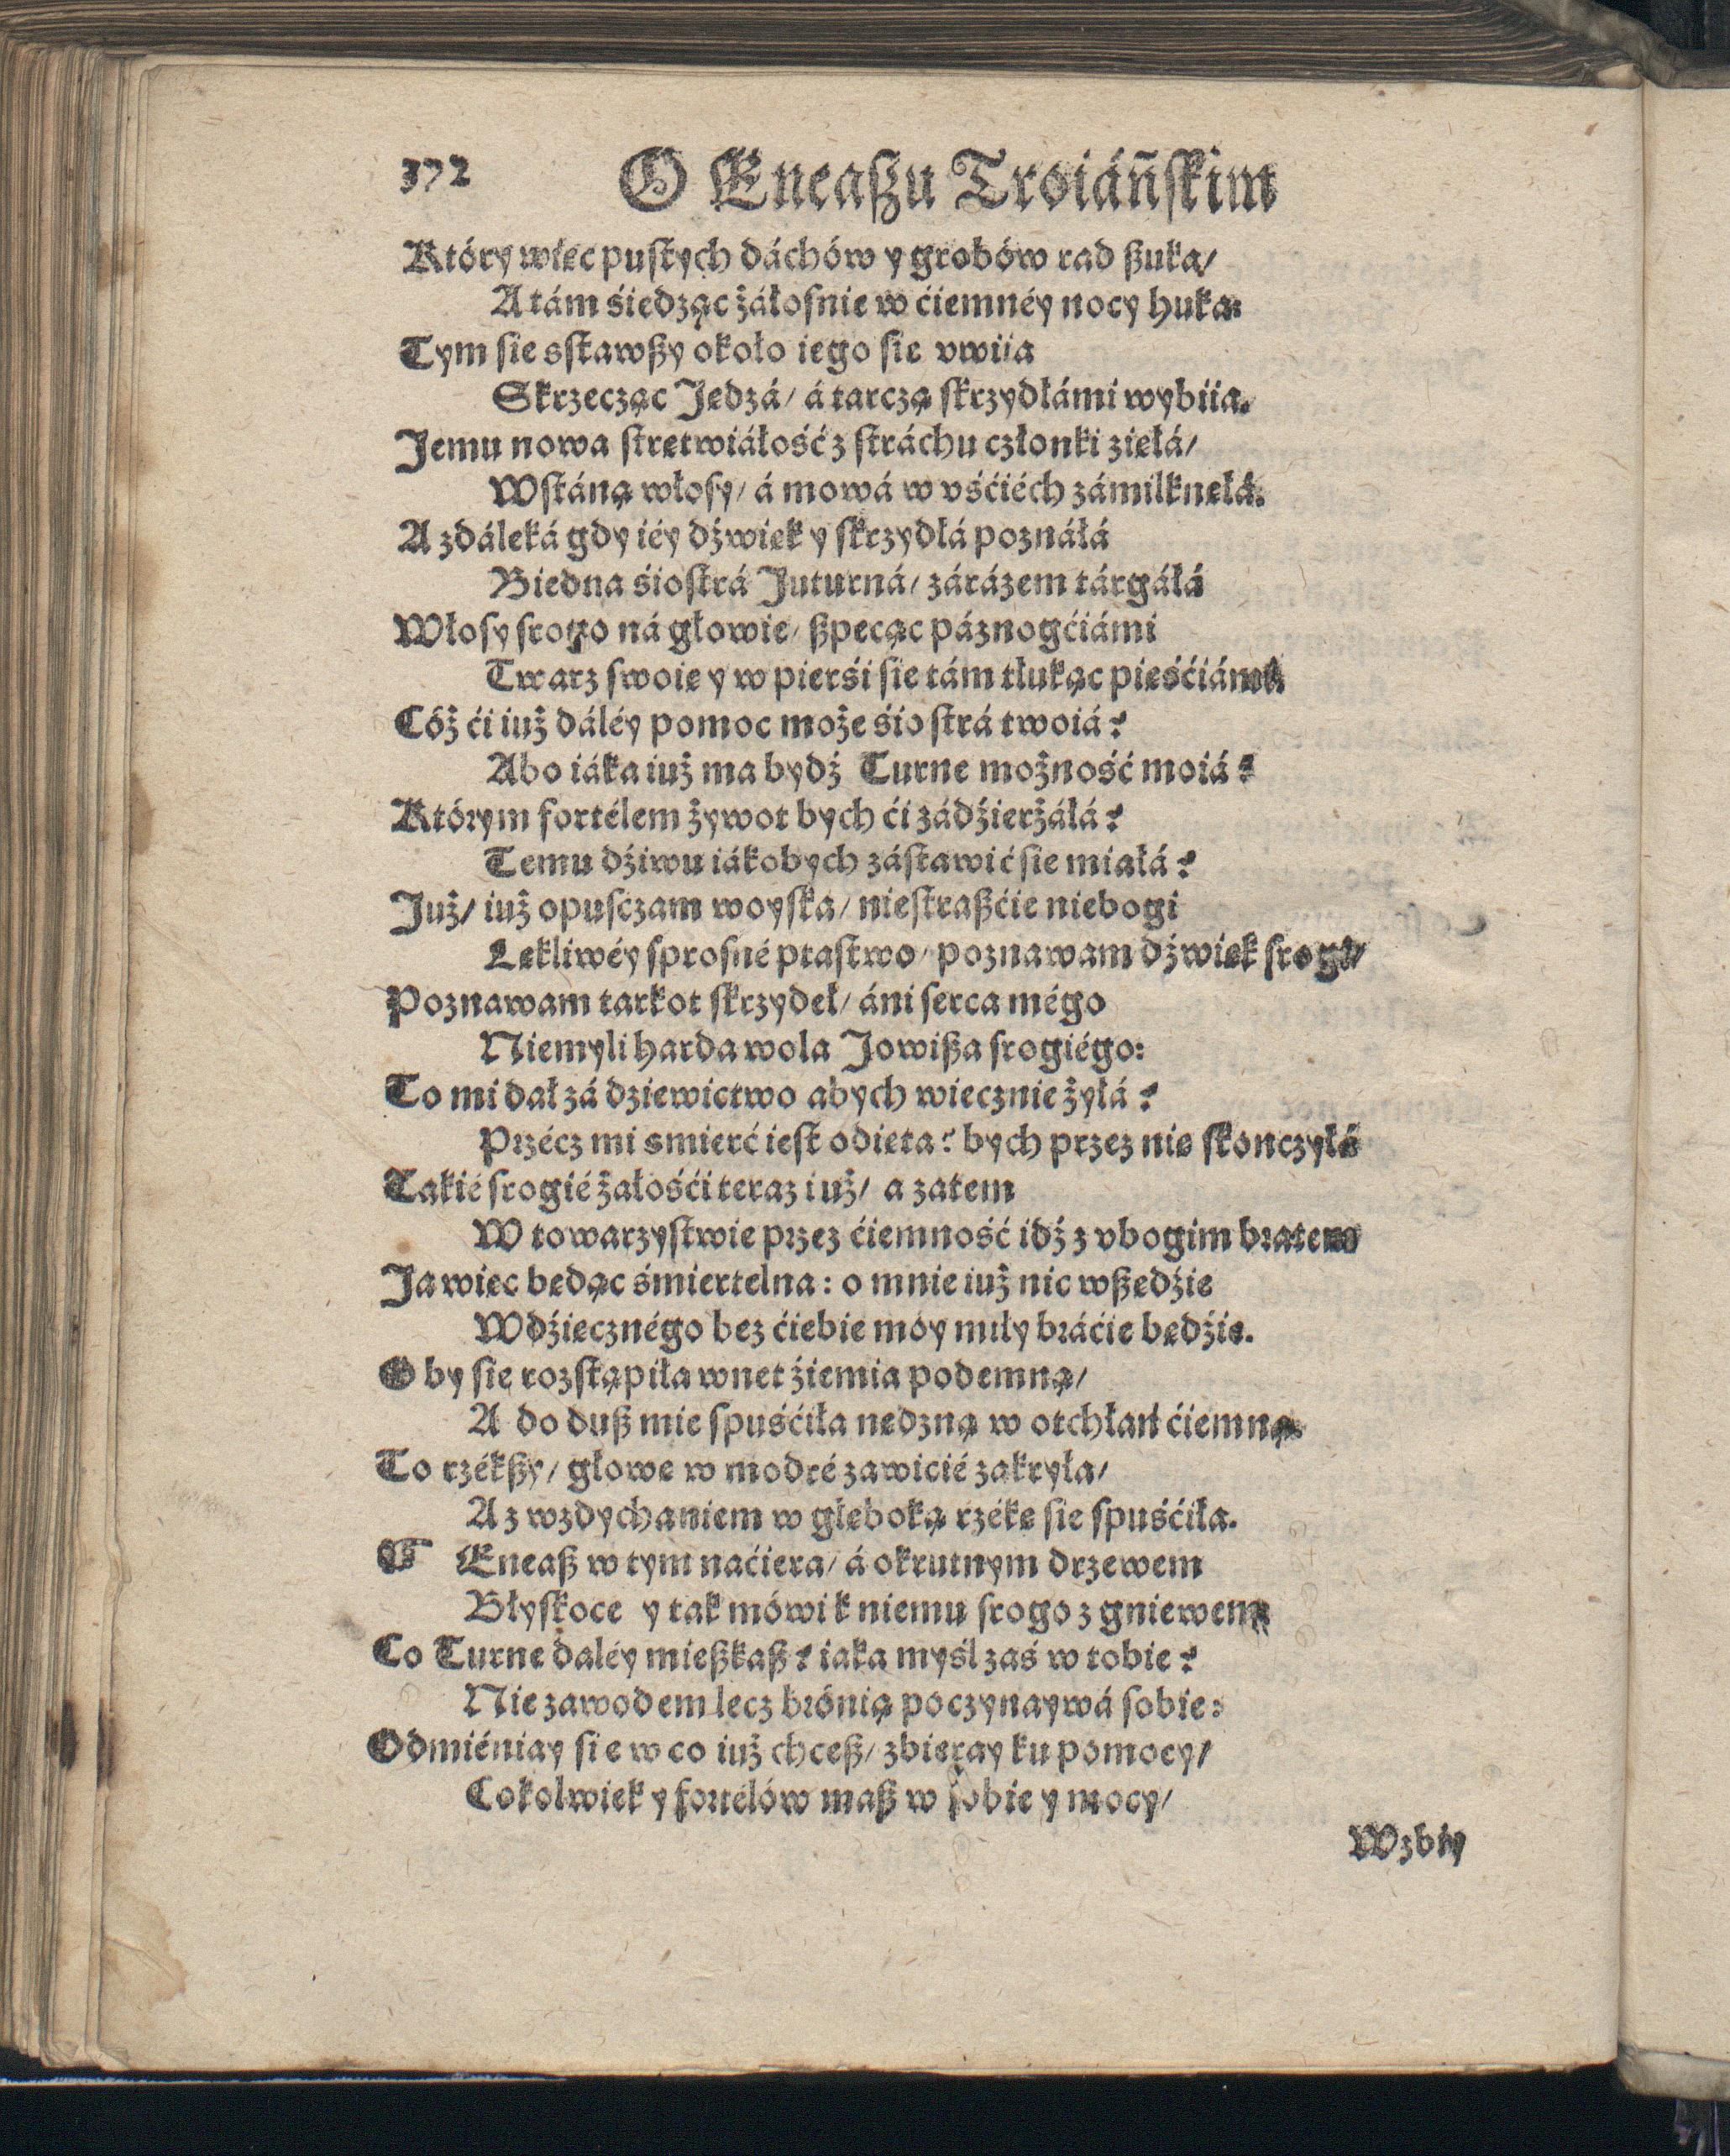 372 O Eneaszu Troiáńskim
Który więc pustych dáchów y grobów rad szuka/
A tám śiedząc żáłosnie w ćiemnéy nocy huka:
Tym sie sstawszy około iego sie vwiia
Skrzecząc Jędzá/ á tarczą skrzydłámi wybiia.
Jemu nowa strętwiáłość z stráchu członki zięłá/
Wstáną włosy/ á mowá w vśćiéch zámilknęłá.
A zdáleká gdy iéy dźwięk y skrzydłá poznáłá
Biedna śiostrá Juturná/ zárázem tárgáłá
Włosy srogo ná głowie/ szpecąc páznogćiámi
Twarz swoię y w pierśi sie tám tłukąc pięśćiámi.
Cóż ći iuż dáléy pomoc może śiostrá twoiá?
Abo iáka iuż ma bydź Turne możność moiá?
Którym fortélem żywot bych ći zádźierżáłá?
Temu dźiwu iákobych zástawić sie miałá?
Już/ iuż opusczam woyska/ niestraszćie niebogi
Lękliwéy sprosné ptastwo/ poznawam dźwięk srogi/
Poznawam tarkot skrzydeł/ áni serca mégo
Niemyli harda wola Jowisza srogiégo:
To mi dał zá dziewictwo abych wiecznie żyłá?
Przécz mi smierć iest odięta? bych przez nię skończyłá
Takié srogié żałośći teraz iuż/ a zatem
W towarzystwie przez ćiemność idź z vbogim bratem
Ja więc będąc śmiertelna: o mnie iuż nic wszędźie
Wdźięcznégo bez ćiebie móy miły bráćie będźie.
O by się rozstąpiła wnet źiemia podemną/
A do dusz mię spuśćiła nędzną w otchłań ćiemną.
To rzékszy/ głowę w modré zawicié zakryła/
A z wzdychaniem w głęboką rzékę sie spuśćiła.
☞ Eneasz w tym naćiera/ á okrutnym drzewem
Błyskoce y tak mówi k niemu srogo z gniewem
Co Turne daléy mieszkasz? iaka myśl zaś w tobie?
Nie zawodem lecz brónią poczynaywá sobie:
Odmiéniay sie w co iuż chcesz/ zbieray ku pomocy/
Cokolwiek y fortélów masz w sobie y mocy/
Wzbiy